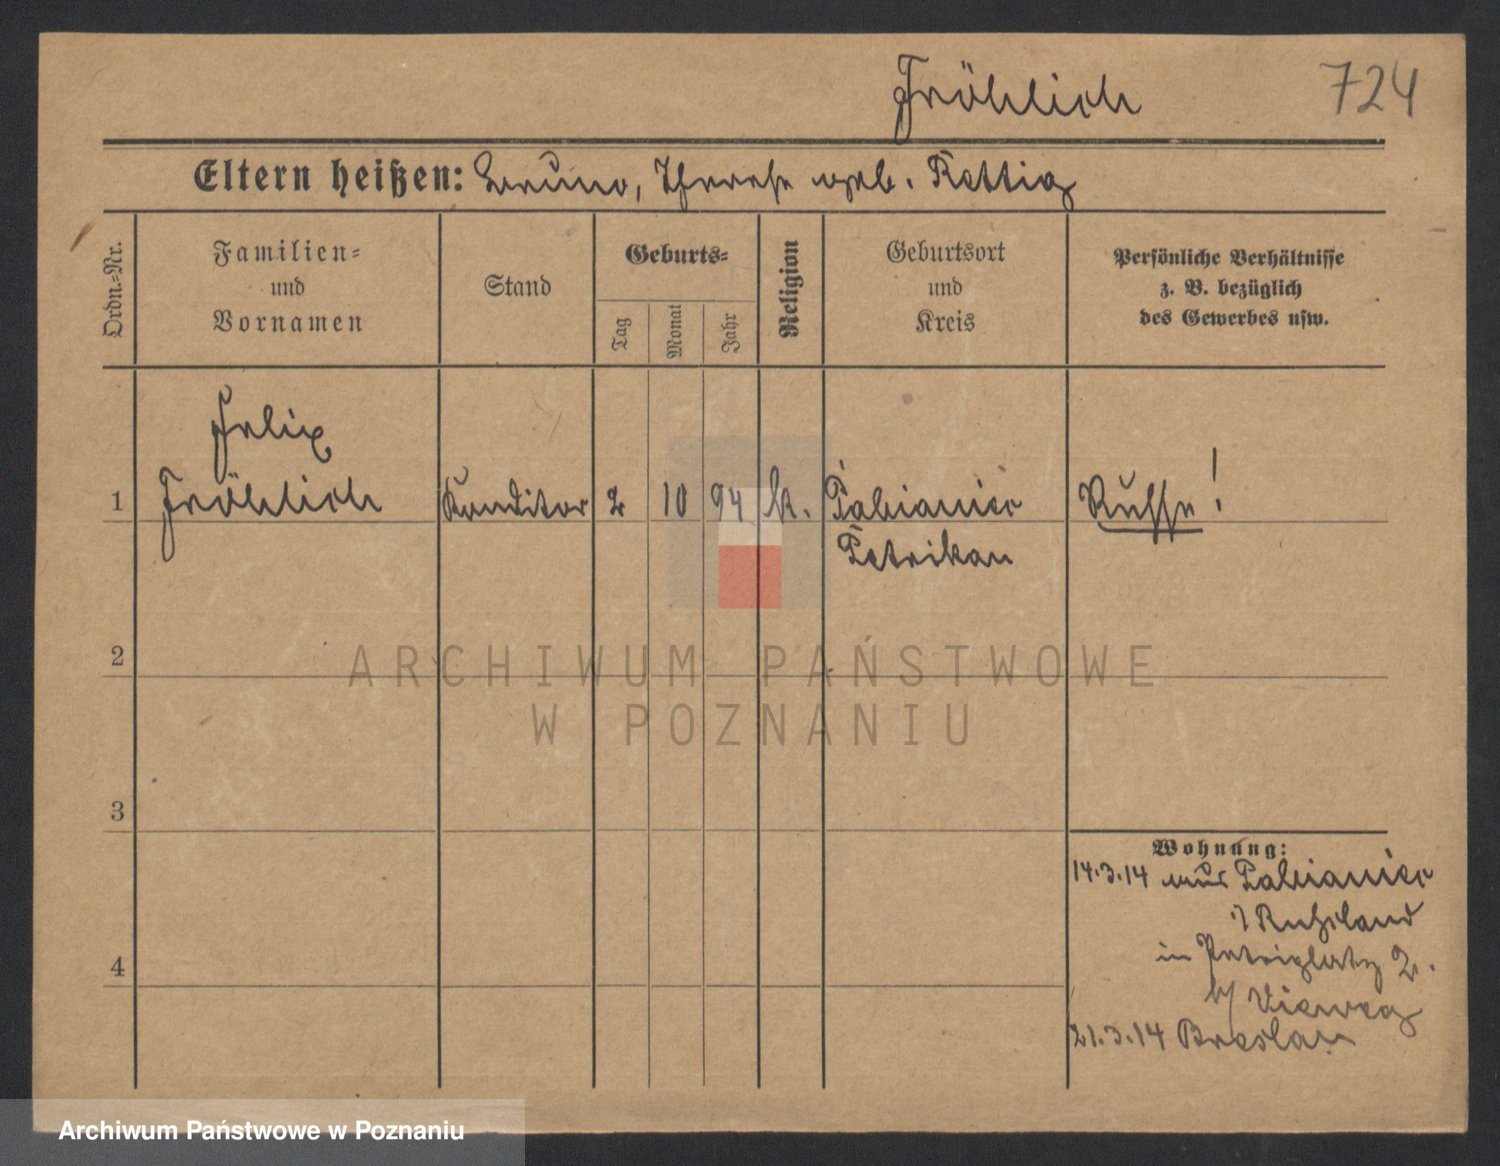 Fröhlich 724
Eltern heißen: Bruno, Therese geb. Rettig
Ordn.-Nr.
Familien-
und
Vornamen
Stand
Geburts-
Tag
Monat
Jahr
Religion
Geburtsort
und
Kreis
Persönliche Verhältnisse
z. B. bezüglich
des Gewerbes usw.
Felix
1 Fröhlich Konditor 2 10 94 k. Pabianice Russe!
Petrikau
2
3
4
Wohnung:
14.3.14 aus Pabianice
i/ Rußland
in Petriplatz 2.
b/ Vieweg
21.3.14 Breslau
ARCHIWUM PAŃSTWOWE
W POZNANIU
Archiwum Państwowe w Poznaniu